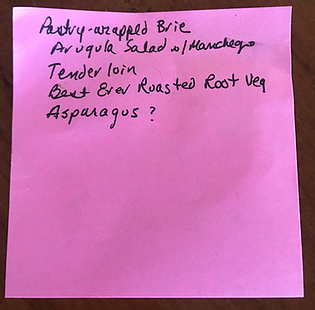 Pastry-wrapped Brie
Arugula Salad w/Manchego
Tenderloin
Best Ever Roasted Root Veg
Asparagus ?